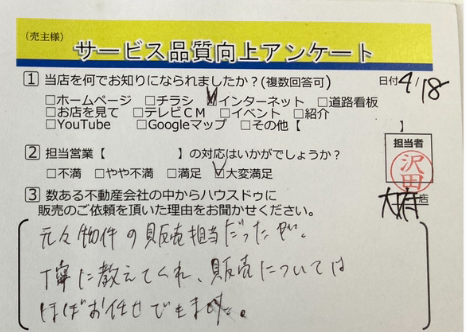 （売主様）
サービス品質向上アンケート
1 当店を何でお知りになられましたか？(複数回答可) 日付 4/18
□ホームページ □チラシ ☑インターネット □道路看板
□お店を見て □テレビCM □イベント □紹介
□YouTube □Googleマップ □その他【 】
2 担当営業【 】の対応はいかがでしょうか？
□不満 □やや不満 □満足 ☑大変満足
担当者
沢田
大府店
3 数ある不動産会社の中からハウスドゥに
販売のご依頼を頂いた理由をお聞かせください。
元々物件の販売担当だった
丁寧に教えてくれ、販売については
ほぼお任せできました。